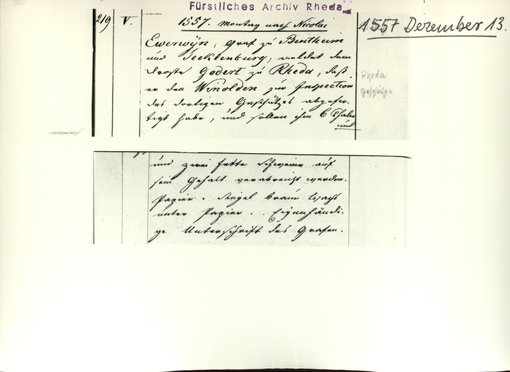 Fürstliches Archiv Rheda
219 V. 1557. Montag nach Nicolai
1557 Dezember 13.
Everwyn, Graf zu Bentheim
und Tecklenburg, meldet dem
Droste Godert zu Rheda, daß
er den Wenolden zur Inspection
des dortigen Geschützes abgefer-
tigt habe, und sollen ihm 6 Thaler
und
Rheda
und zwei fette Schweine auf
sein Gehalt verabreicht werden.
Papier. Siegel braun Wachs
unter Papier. Eigenhändi-
ge Unterschrift des Grafen.